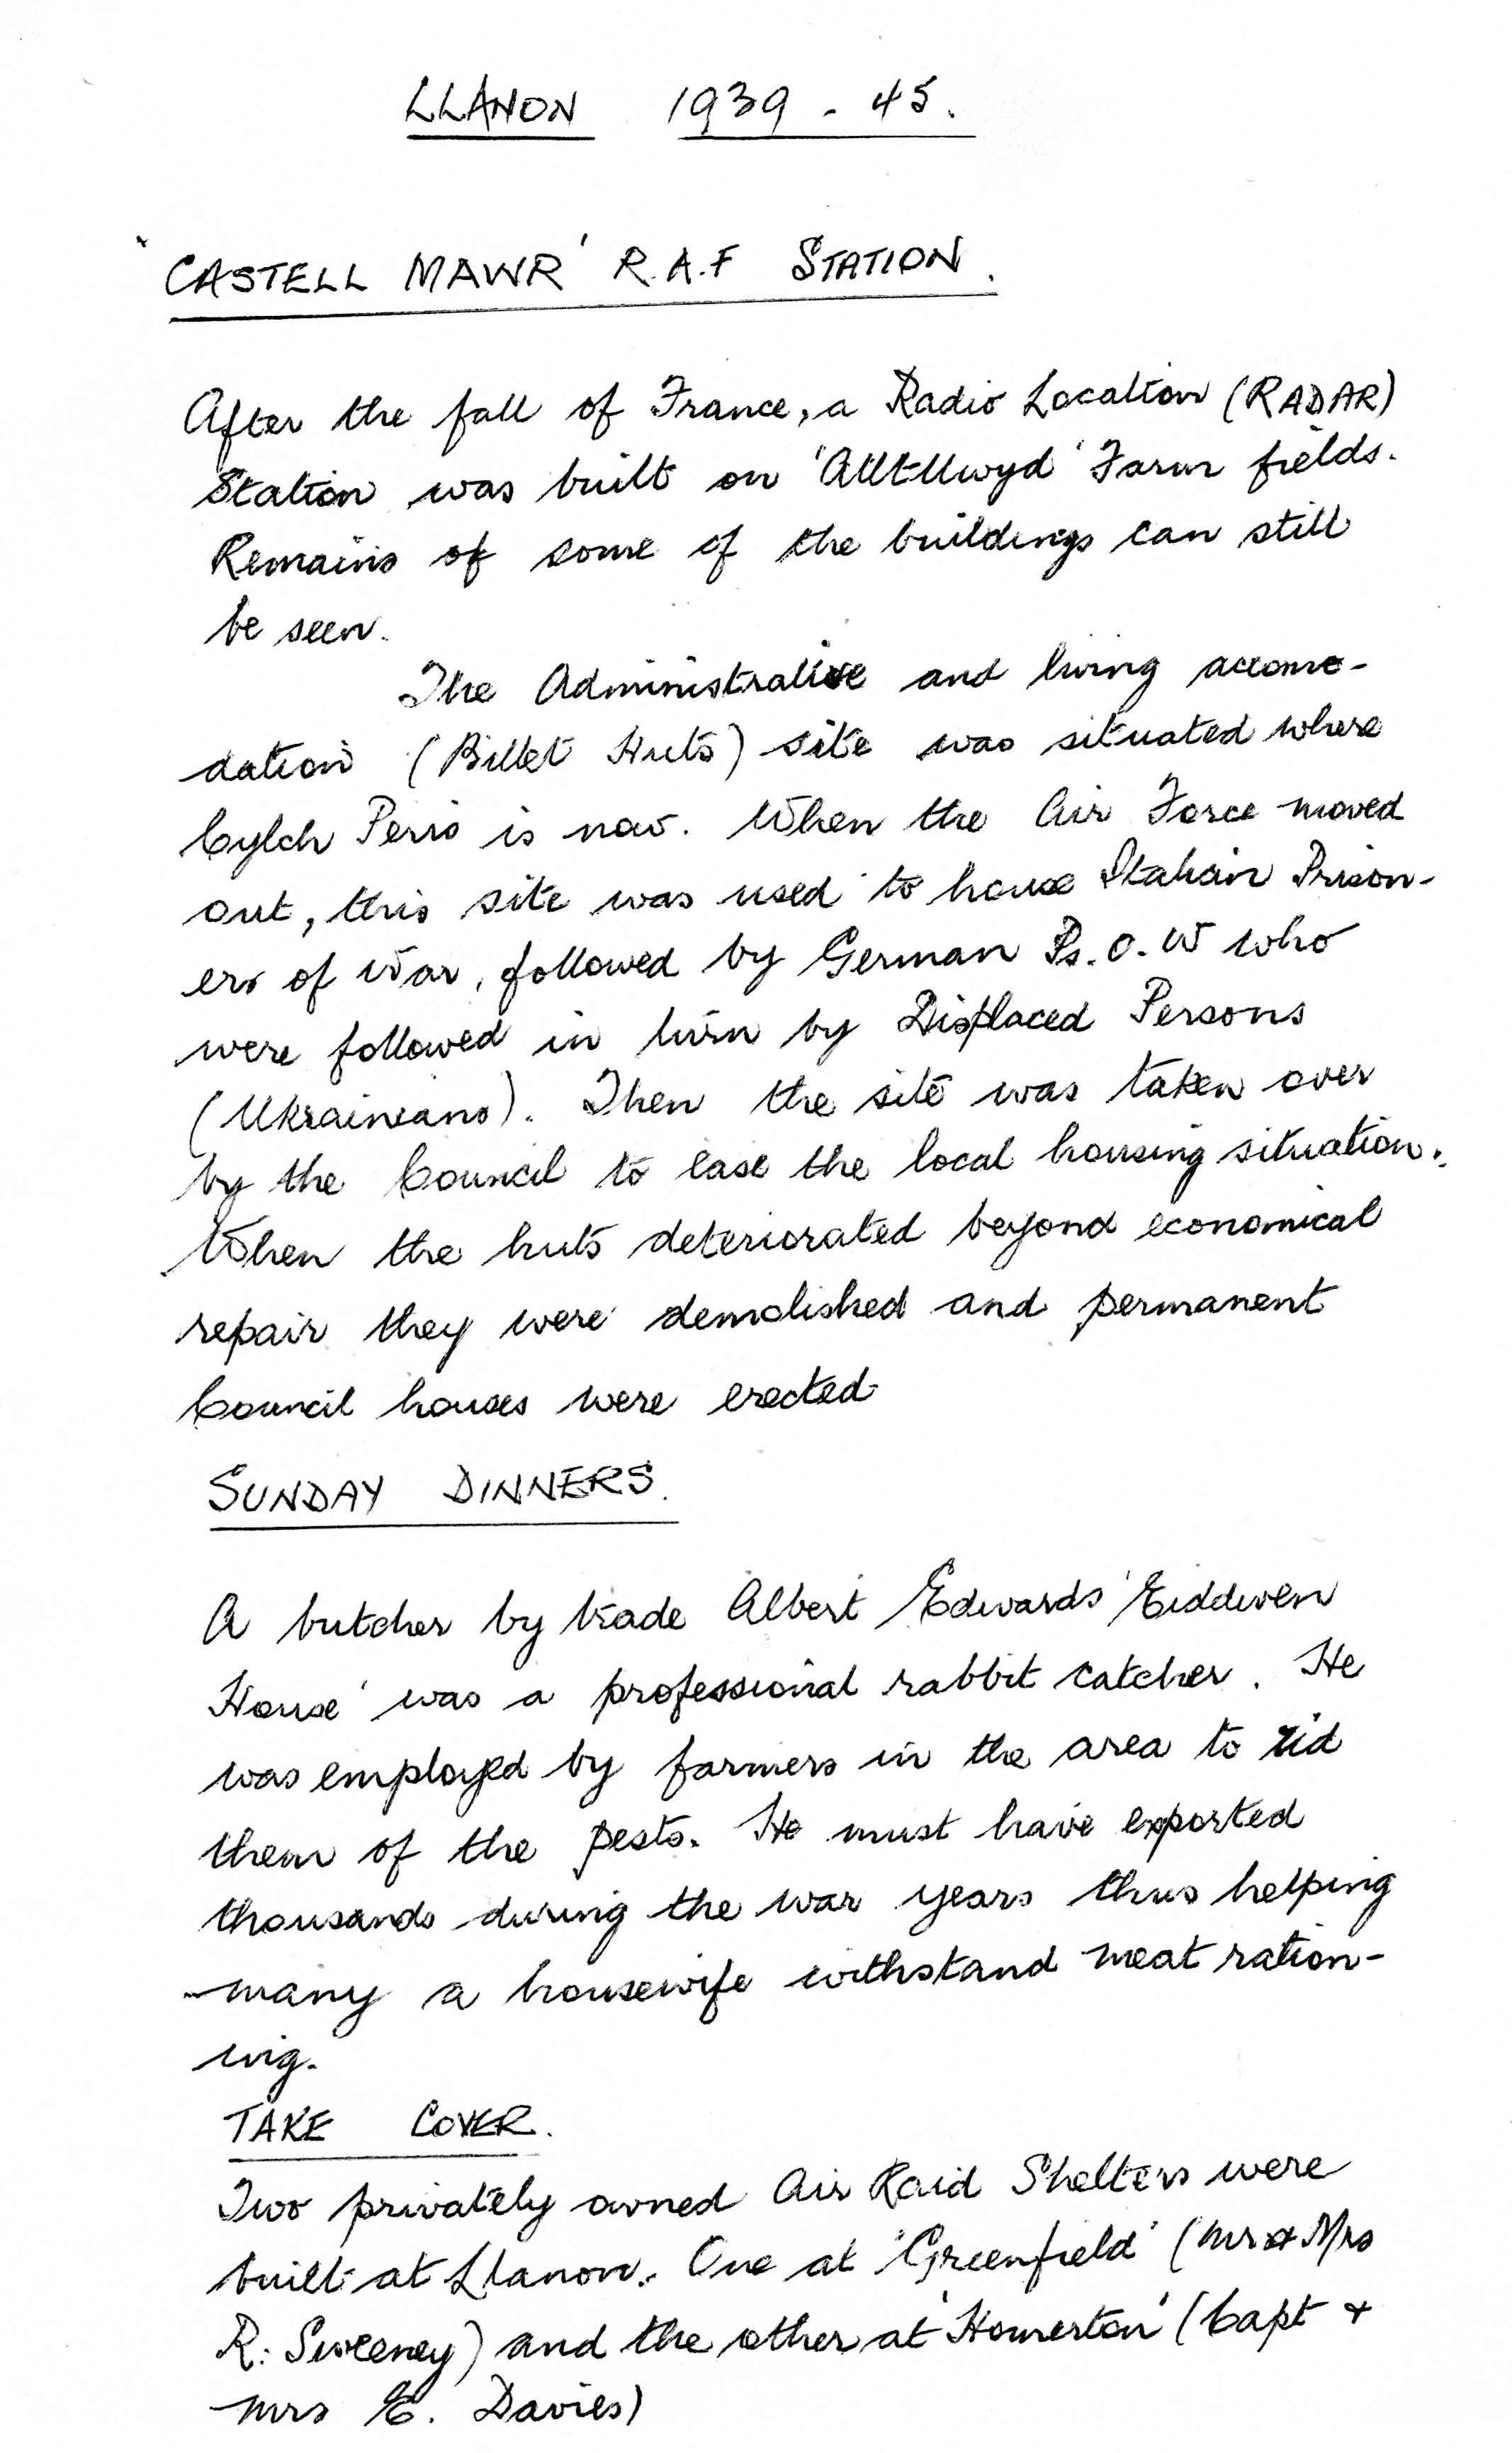 LLANON 1939 - 45.
'CASTELL MAWR' R.A.F STATION.
After the fall of France, a Radio Location (RADAR)
Station was built on 'Alltllwyd' Farm fields.
Remains of some of the buildings can still
be seen.
The Administrative and living accomo-
dation (Billet Huts) site was situated where
Cylch Peris is now. When the Air Force moved
out, this site was used to house Italian Prison-
ers of War, followed by German Ps.O.W who
were followed in turn by Displaced Persons
(Ukrainians). Then the site was taken over
by the Council to ease the local housing situation.
When the huts deteriorated beyond economical
repair they were demolished and permanent
Council houses were erected.
SUNDAY DINNERS.
A butcher by trade Albert Edwards 'Eiddwen
House' was a professional rabbit catcher. He
was employed by farmers in the area to rid
them of the pests. He must have exported
thousands during the war years thus helping
many a housewife withstand meat ration-
ing.
TAKE COVER.
Two privately owned Air Raid Shelters were
built at Llanon. One at 'Greenfield' (Mr & Mrs
R. Sweeney) and the other at 'Homerton' (Capt &
Mrs E. Davies)